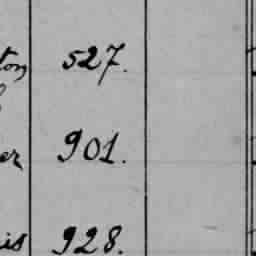 ton 527.
er 901.
is 928.